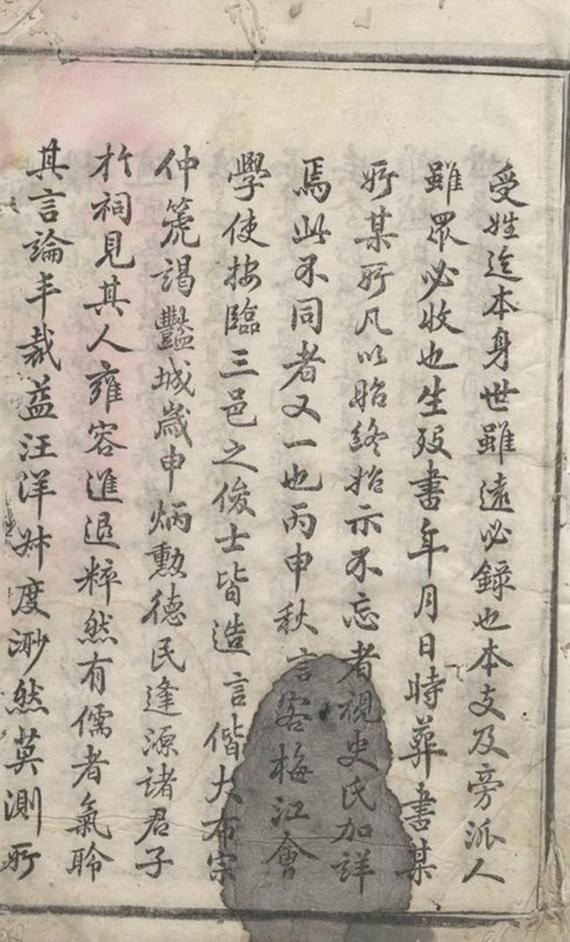 受姓迄本身世雖遠必錄也本支及旁派人
雖眾必收也生歿書年月日時葬書某
所某所凡以始終始示不忘者視史氏加詳
焉此不同者又一也丙申秋言客梅江會
學使按臨三邑之俊士皆造言偕大布宗
仲箎謁豔城歲申炳勲德民逢源諸君子
於祠見其人雍容進退粹然有儒者氣聆
其言論丰裁益汪洋廾度渺然莫測所